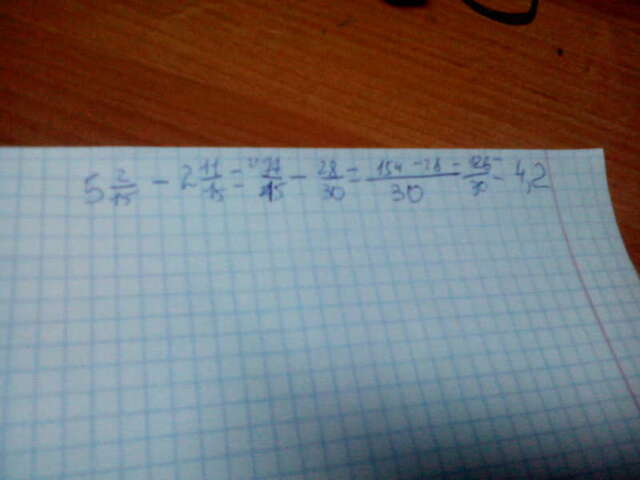 5 2/15 - 2 11/15 = 77/15 - 28/30 = 154 - 28/30 = 126/30 = 4,2